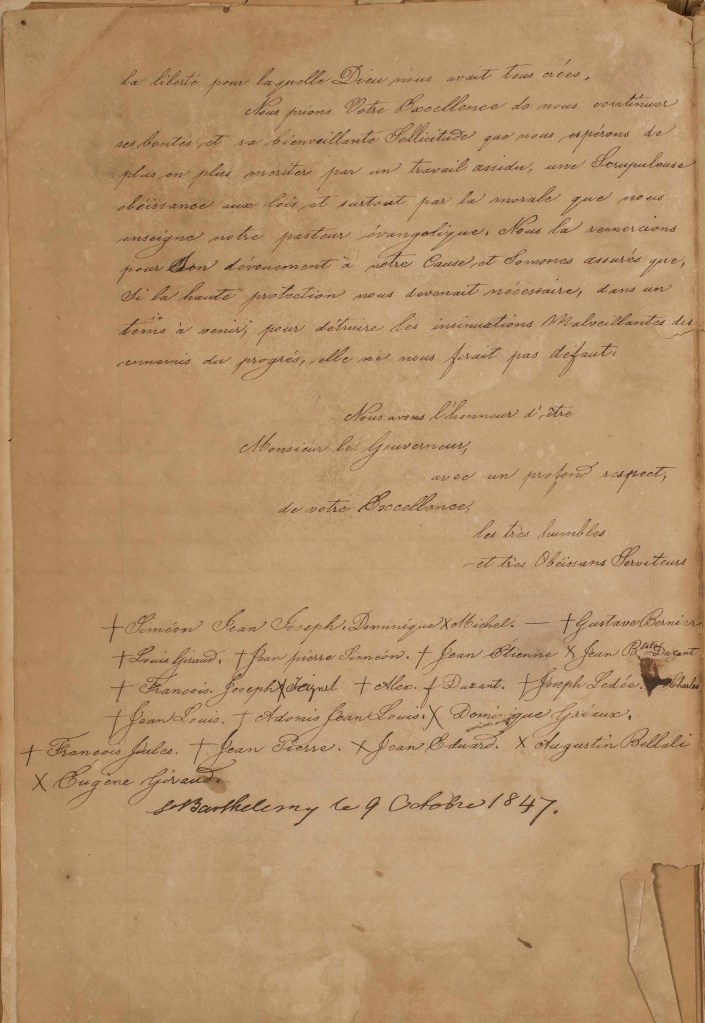 la liberté pour laquelle Dieu nous avait tous crées.
Nous prions Votre Excellence de nous continuer
ses bontés et sa bienveillante Sollicitude que nous espérons de
plus en plus mériter par un travail assidu, une Scrupuleuse
obéissance aux lois, et surtout par la morale que nous
enseigne notre pasteur évangélique. Nous la remercions
pour Son dévouement à notre Cause, et Sommes assurés que,
Si la haute protection nous devenait nécessaire, dans un
tems à venir, pour détruire les insinuations Malveillantes des
ennemis du progrés, elle ne nous ferait pas défaut.
Nous avons l'honneur d'être
Monsieur le Gouverneur,
avec un profond respect,
de votre Excellence,
les très humbles
et très Obéissans Serviteurs
+ Siméon Jean Joseph. Dominique X Michel. — + Gustave Bernier
+ Louis Giraud. + Jean pierre Siméon. + Jean Etienne X Jean Bte Dazant
+ François. Joseph X + Alex. f Duzant. + Joseph Ledée. Charles
+ Jean Louis. + Adonis Jean Louis. X Dominique Gréaux.
+ François Jules. + Jean Pierre. X Jean Eduard. X Augustin Bellali
X Eugène Giraud.
St Barthelemy le 9 Octobre 1847.